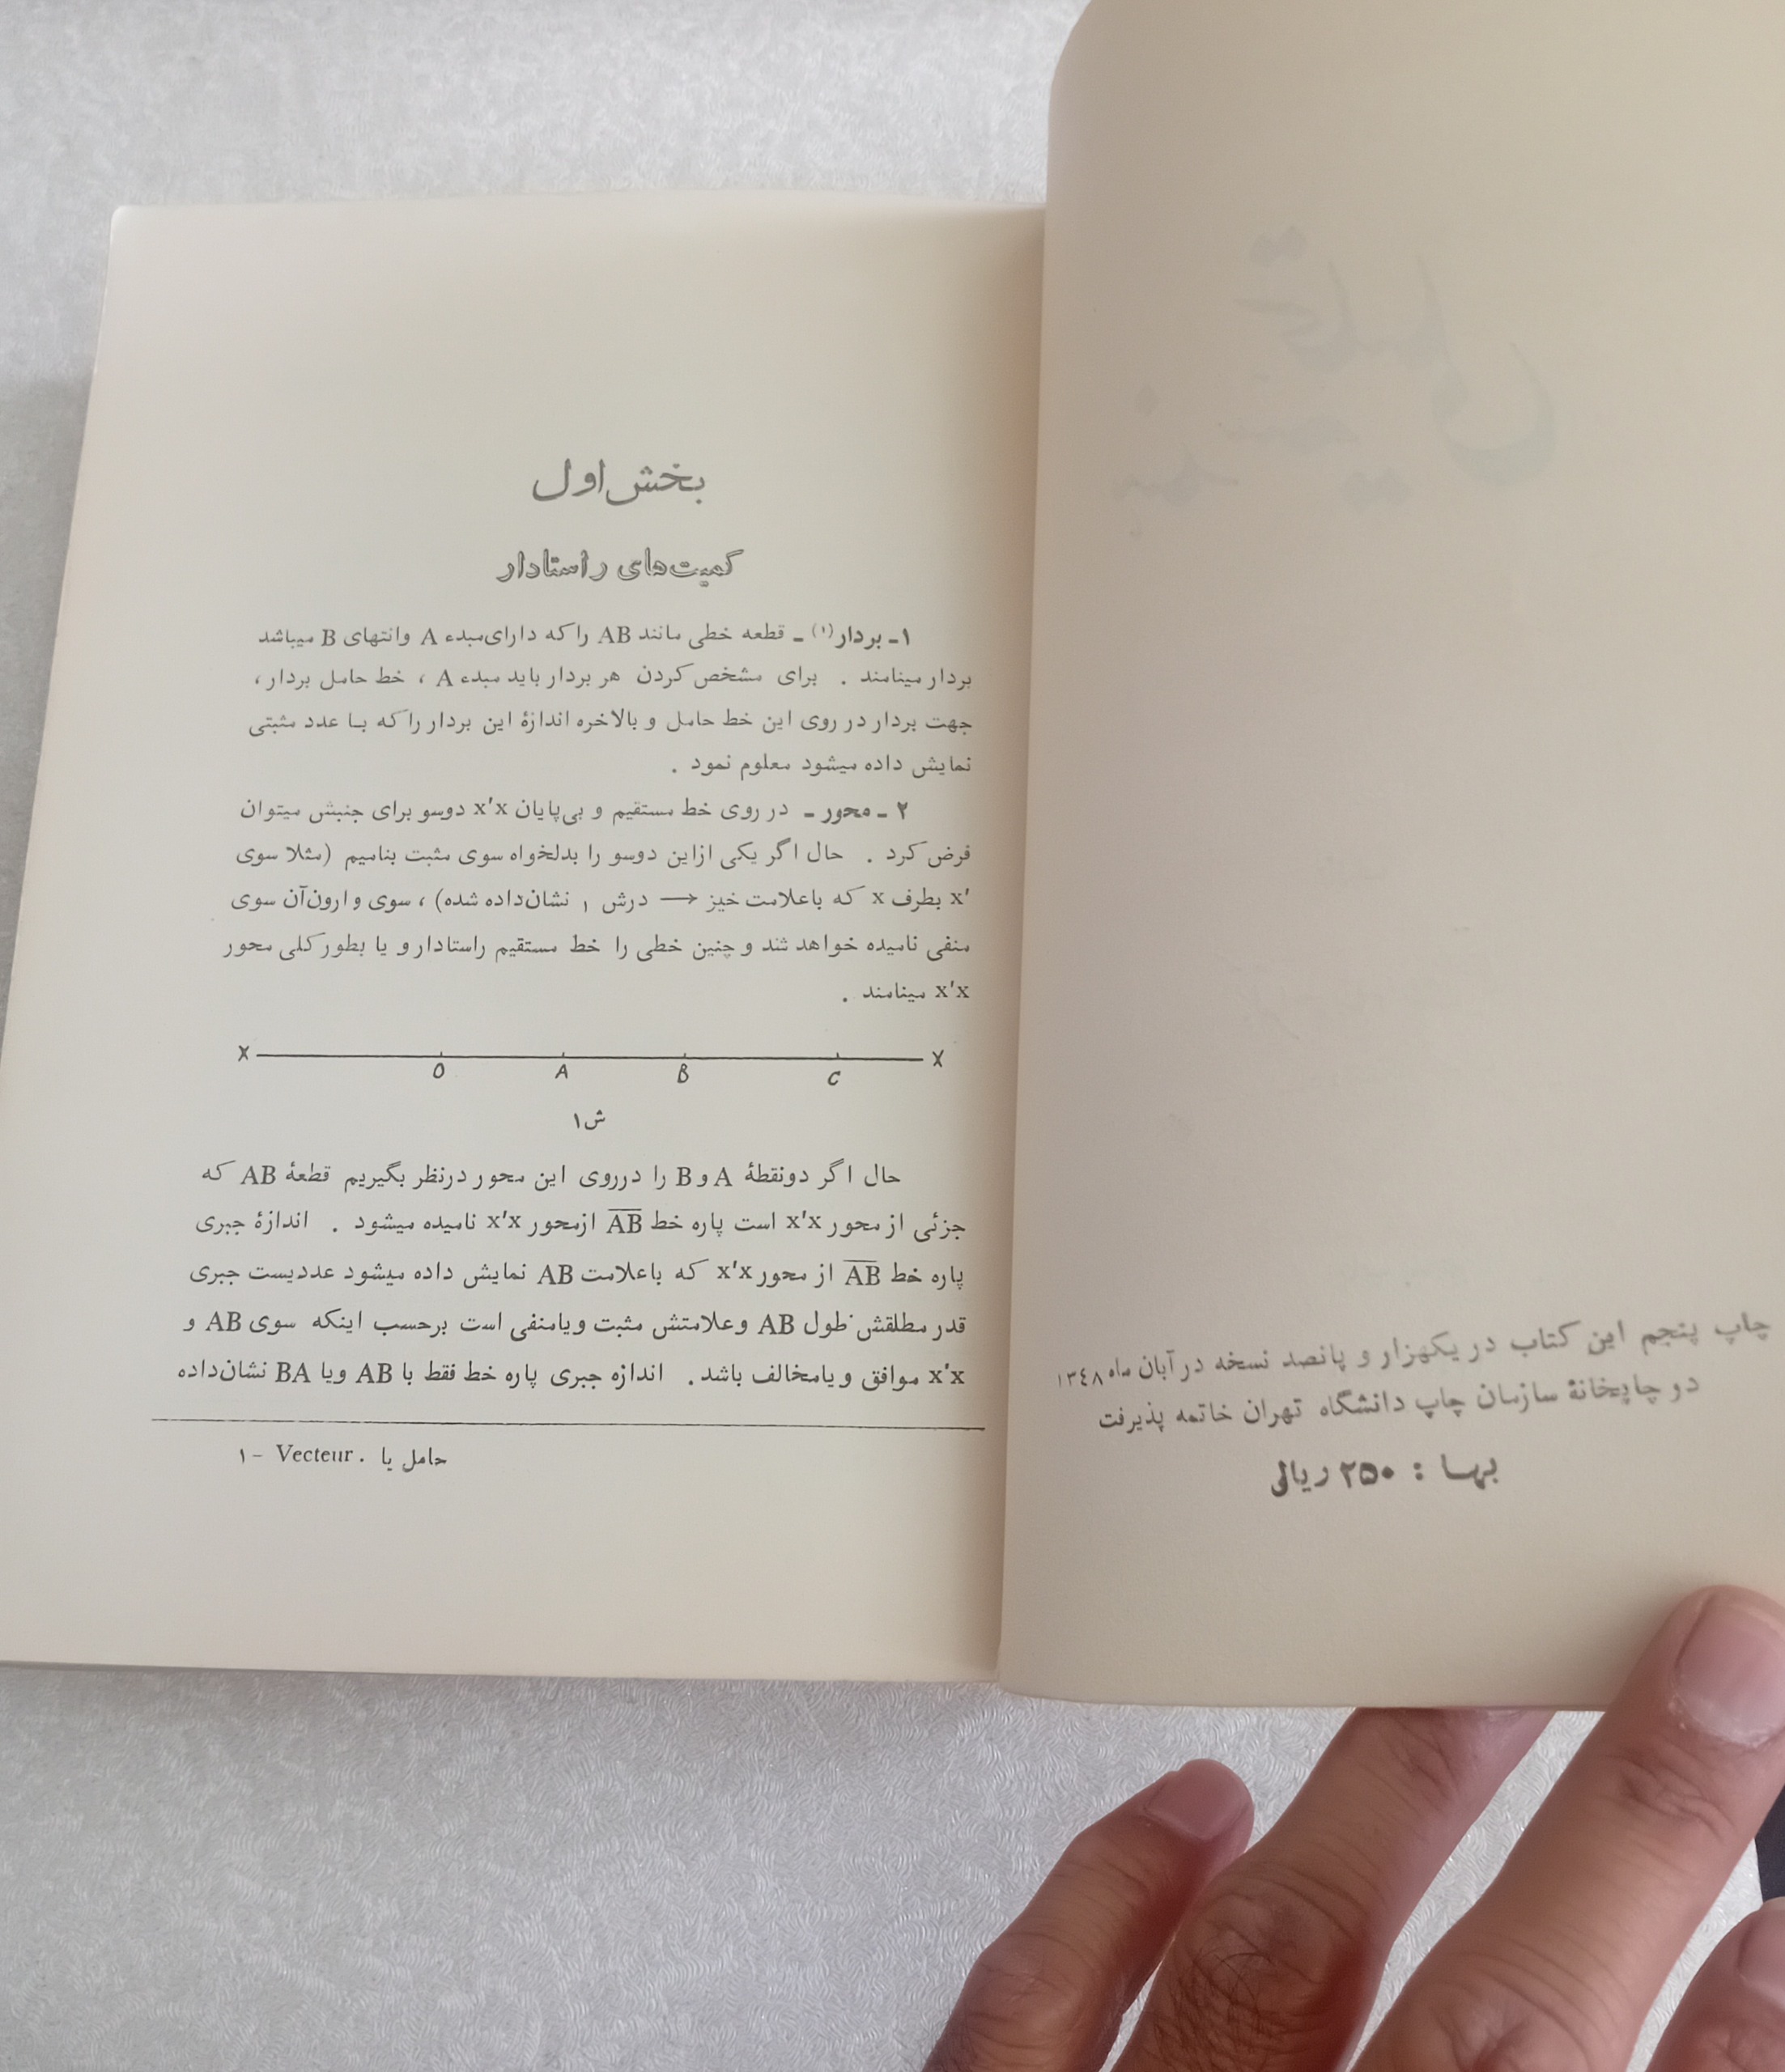 چاپ پنجم این کتاب در یکهزار و پانصد نسخه در آبان ماه ١٣٤٨
دو چاپخانهٔ سازمان چاپ دانشگاه تهران خاتمه پذیرفت
بهـا : ۲۵۰ ریال
بخش اول
کمیت‌های راستادار
۱ـ بردار(۱) ـ قطعه خطی مانند AB را که دارای مبدء A وانتهای B میباشد
بردار مینامند . برای مشخص کردن هر بردار باید مبدء A ، خط حامل بردار ،
جهت بردار در روی این خط حامل و بالاخره اندازهٔ این بردار را که بـا عدد مثبتی
نمایش داده میشود معلوم نمود .
۲ ـ محور ـ در روی خط مستقیم و بی‌پایان x'x دوسو برای جنبش میتوان
فرض کرد . حال اگر یکی ازاین دوسو را بدلخواه سوی مثبت بنامیم (مثلا سوی
x' بطرف x که باعلامت خیز ⟶ درش ۱ نشان‌داده شده) ، سوی وارون‌آن سوی
منفی نامیده خواهد شد و چنین خطی را خط مستقیم راستادار و یا بطور کلی محور
x'x مینامند .
X O A B C X
ش۱
حال اگر دونقطهٔ A و B را درروی این محور درنظر بگیریم قطعهٔ AB که
جزئی از محور x'x است پاره خط A̅B̅ ازمحور x'x نامیده میشود . اندازهٔ جبری
پاره خط A̅B̅ از محور x'x که باعلامت AB نمایش داده میشود عددیست جبری
قدر مطلقش طول AB وعلامتش مثبت ویامنفی است برحسب اینکه سوی AB و
x'x موافق ویامخالف باشد . اندازه جبری پاره خط فقط با AB ویا BA نشان‌داده
۱- Vecteur . حامل یا